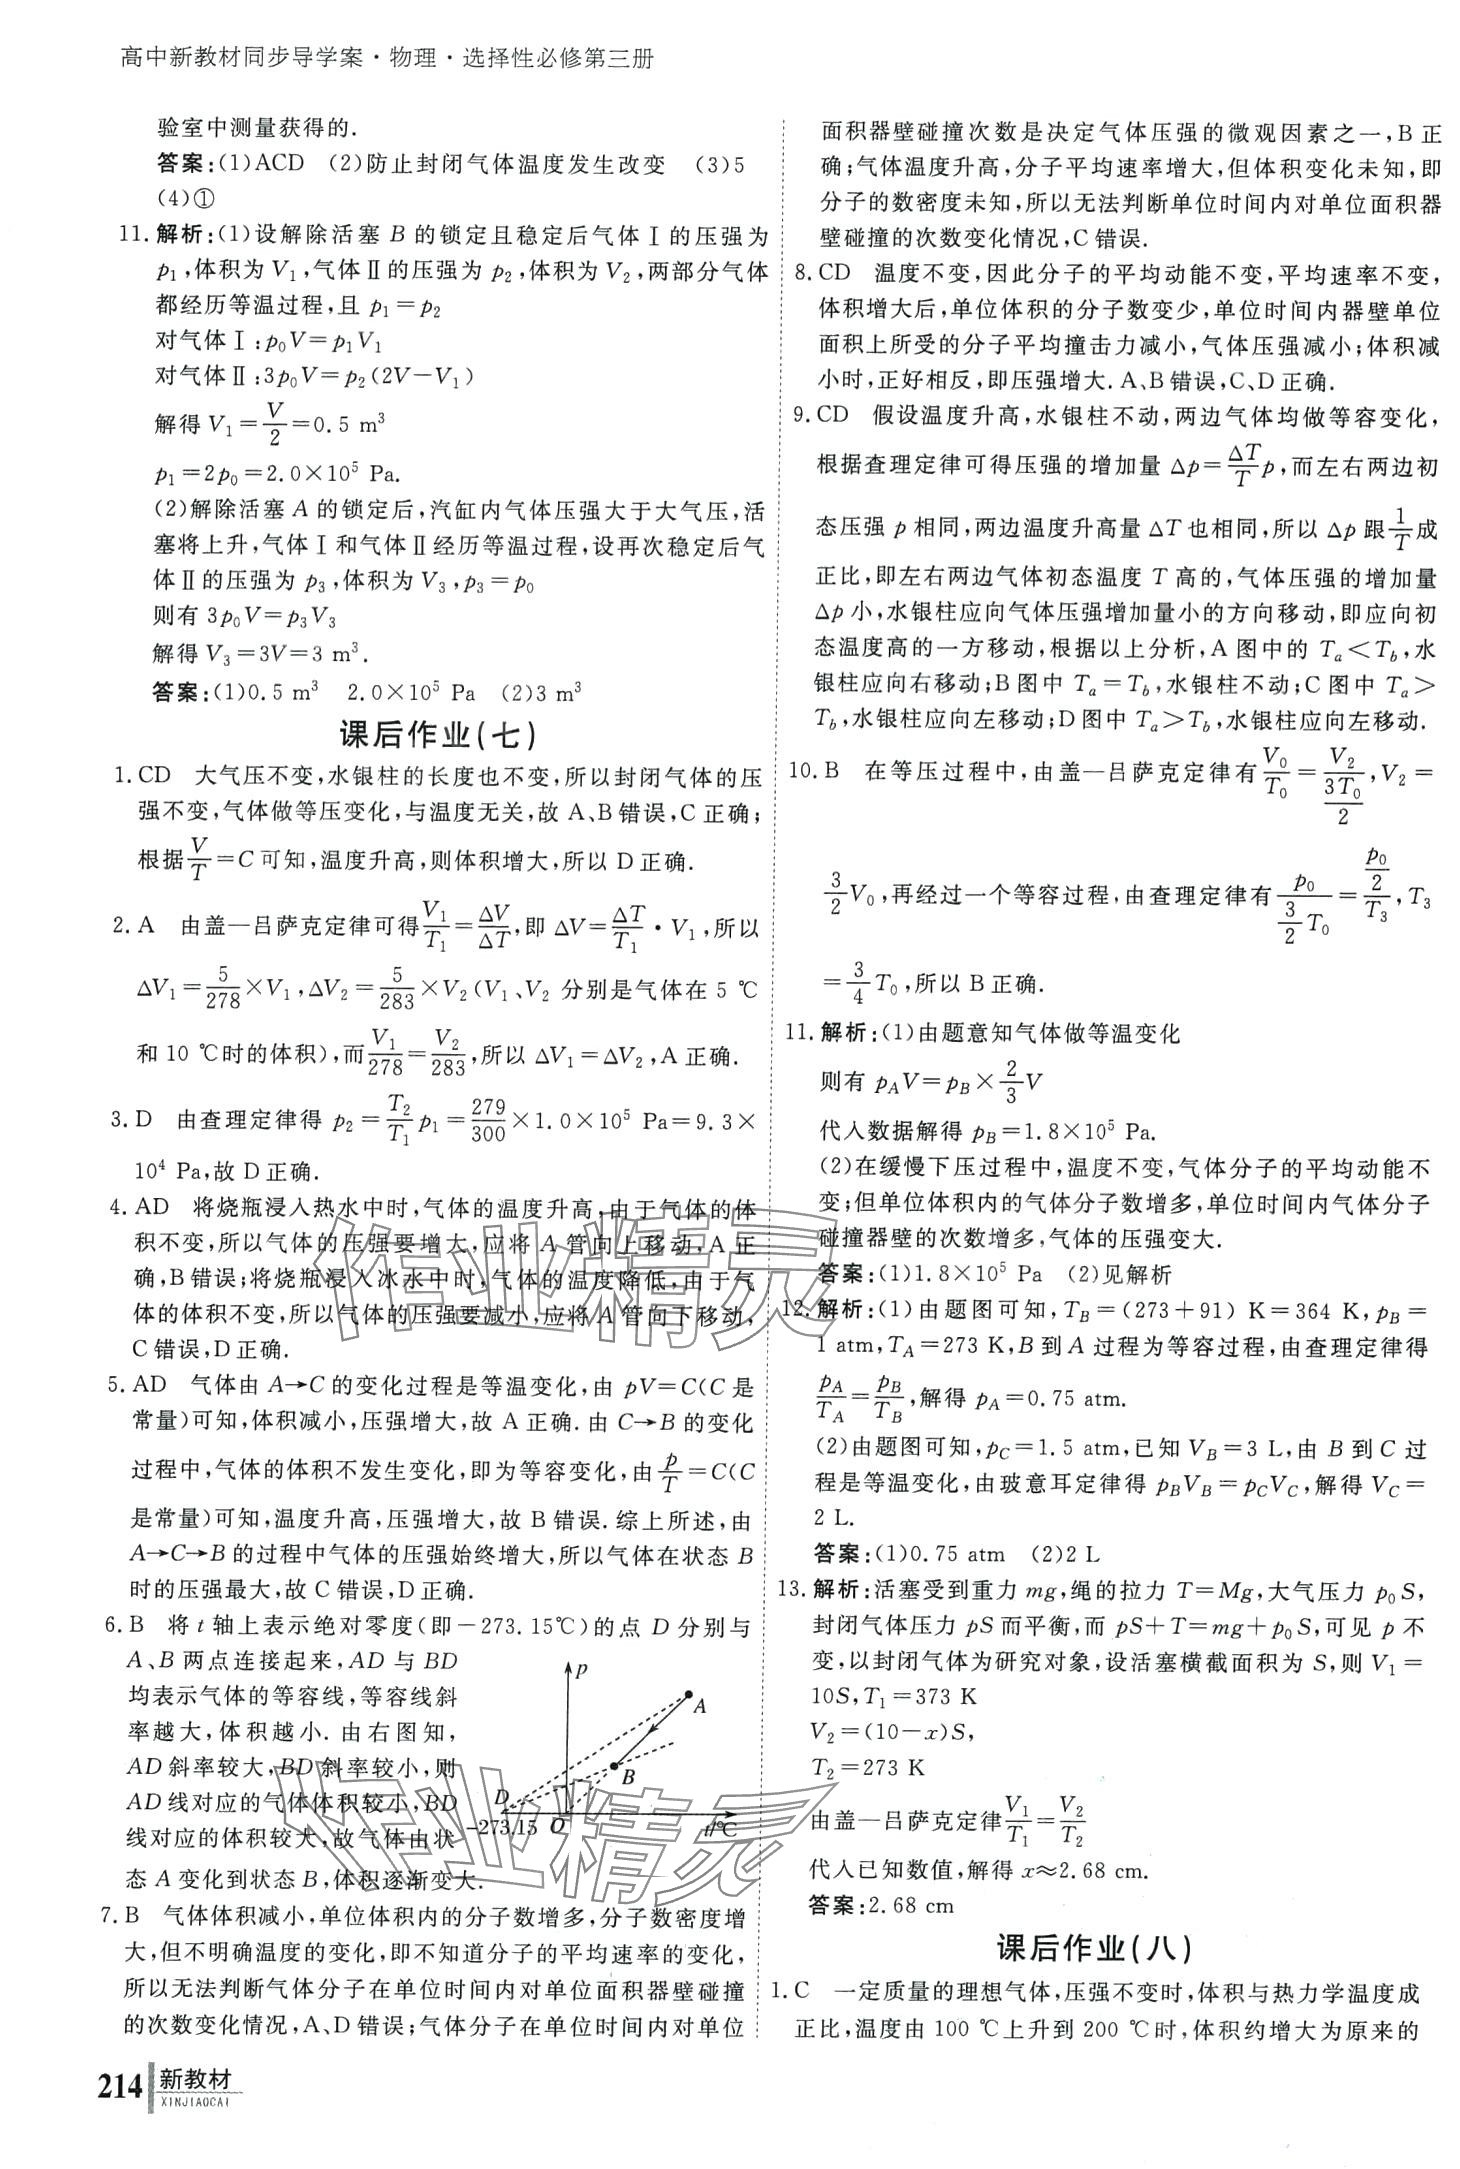 高中新教材同步导学案·物理·选择性必修第三册
验室中测量获得的.
答案:(1)ACD (2)防止封闭气体温度发生改变 (3)5
(4)①
11. 解析:(1)设解除活塞 B 的锁定且稳定后气体Ⅰ的压强为
p₁,体积为 V₁,气体Ⅱ的压强为 p₂,体积为 V₂,两部分气体
都经历等温过程,且 p₁=p₂
对气体Ⅰ:p₀V=p₁V₁
对气体Ⅱ:3p₀V=p₂(2V-V₁)
解得 V₁=V/2=0.5 m³
p₁=2p₀=2.0×10⁵ Pa.
(2)解除活塞 A 的锁定后,汽缸内气体压强大于大气压,活
塞将上升,气体Ⅰ和气体Ⅱ经历等温过程,设再次稳定后气
体Ⅱ的压强为 p₃,体积为 V₃,p₃=p₀
则有 3p₀V=p₃V₃
解得 V₃=3V=3 m³.
答案:(1)0.5 m³ 2.0×10⁵ Pa (2)3 m³
课后作业(七)
1. CD 大气压不变,水银柱的长度也不变,所以封闭气体的压
强不变,气体做等压变化,与温度无关,故 A、B 错误,C 正确;
根据V/T=C 可知,温度升高,则体积增大,所以 D 正确.
2. A 由盖—吕萨克定律可得V₁/T₁=ΔV/ΔT,即 ΔV=ΔT/T₁·V₁,所以
ΔV₁=5/278×V₁,ΔV₂=5/283×V₂(V₁、V₂ 分别是气体在 5 ℃
和 10 ℃时的体积),而V₁/278=V₂/283,所以 ΔV₁=ΔV₂,A 正确.
3. D 由查理定律得 p₂=T₂/T₁p₁=279/300×1.0×10⁵ Pa=9.3×
10⁴ Pa,故 D 正确.
4. AD 将烧瓶浸入热水中时,气体的温度升高,由于气体的体
积不变,所以气体的压强要增大,应将 A 管向上移动,A 正
确,B 错误;将烧瓶浸入冰水中时,气体的温度降低,由于气
体的体积不变,所以气体的压强要减小,应将 A 管向下移动,
C 错误,D 正确.
5. AD 气体由 A→C 的变化过程是等温变化,由 pV=C(C 是
常量)可知,体积减小,压强增大,故 A 正确.由 C→B 的变化
过程中,气体的体积不发生变化,即为等容变化,由p/T=C(C
是常量)可知,温度升高,压强增大,故 B 错误.综上所述,由
A→C→B 的过程中气体的压强始终增大,所以气体在状态 B
时的压强最大,故 C 错误,D 正确.
6. B 将 t 轴上表示绝对零度(即-273.15℃)的点 D 分别与
A、B 两点连接起来,AD 与 BD
均表示气体的等容线,等容线斜
率越大,体积越小.由右图知,
AD 斜率较大,BD 斜率较小,则
AD 线对应的气体体积较小,BD
线对应的体积较大,故气体由状
态 A 变化到状态 B,体积逐渐变大.
p
A
B
D
-273.15
O
t/℃
7. B 气体体积减小,单位体积内的分子数增多,分子数密度增
大,但不明确温度的变化,即不知道分子的平均速率的变化,
所以无法判断气体分子在单位时间内对单位面积器壁碰撞
的次数变化情况,A、D 错误;气体分子在单位时间内对单位
面积器壁碰撞次数是决定气体压强的微观因素之一,B 正
确;气体温度升高,分子平均速率增大,但体积变化未知,即
分子的数密度未知,所以无法判断单位时间内对单位面积器
壁碰撞的次数变化情况,C 错误.
8. CD 温度不变,因此分子的平均动能不变,平均速率不变,
体积增大后,单位体积的分子数变少,单位时间内器壁单位
面积上所受的分子平均撞击力减小,气体压强减小;体积减
小时,正好相反,即压强增大.A、B 错误,C、D 正确.
9. CD 假设温度升高,水银柱不动,两边气体均做等容变化,
根据查理定律可得压强的增加量 Δp=ΔT/T p,而左右两边初
态压强 p 相同,两边温度升高量 ΔT 也相同,所以 Δp 跟1/T成
正比,即左右两边气体初态温度 T 高的,气体压强的增加量
Δp 小,水银柱应向气体压强增加量小的方向移动,即应向初
态温度高的一方移动,根据以上分析,A 图中的 Tₐ<T_b,水
银柱应向右移动;B 图中 Tₐ=T_b,水银柱不动;C 图中 Tₐ>
T_b,水银柱应向左移动;D 图中 Tₐ>T_b,水银柱应向左移动.
10. B 在等压过程中,由盖—吕萨克定律有V₀/T₀=V₂/(3T₀/2),V₂=
3/2V₀,再经过一个等容过程,由查理定律有p₀/(3/2 T₀)=(p₀/2)/T₃,T₃
=3/4T₀,所以 B 正确.
11. 解析:(1)由题意知气体做等温变化
则有 p_AV=p_B×2/3V
代入数据解得 p_B=1.8×10⁵ Pa.
(2)在缓慢下压过程中,温度不变,气体分子的平均动能不
变;但单位体积内的气体分子数增多,单位时间内气体分子
碰撞器壁的次数增多,气体的压强变大.
答案:(1)1.8×10⁵ Pa (2)见解析
12. 解析:(1)由题图可知,T_B=(273+91) K=364 K,p_B=
1 atm,T_A=273 K,B 到 A 过程为等容过程,由查理定律得
p_A/T_A=p_B/T_B,解得 p_A=0.75 atm.
(2)由题图可知,p_C=1.5 atm,已知 V_B=3 L,由 B 到 C 过
程是等温变化,由玻意耳定律得 p_BV_B=p_CV_C,解得 V_C=
2 L.
答案:(1)0.75 atm (2)2 L
13. 解析:活塞受到重力 mg,绳的拉力 T=Mg,大气压力 p₀S,
封闭气体压力 pS 而平衡,而 pS+T=mg+p₀S,可见 p 不
变,以封闭气体为研究对象,设活塞横截面积为 S,则 V₁=
10S,T₁=373 K
V₂=(10-x)S,
T₂=273 K
由盖—吕萨克定律V₁/T₁=V₂/T₂
代入已知数值,解得 x≈2.68 cm.
答案:2.68 cm
课后作业(八)
1. C 一定质量的理想气体,压强不变时,体积与热力学温度成
正比,温度由 100 ℃上升到 200 ℃时,体积约增大为原来的
214 新教材
XINJIAOCAI
作业精灵
作业精灵